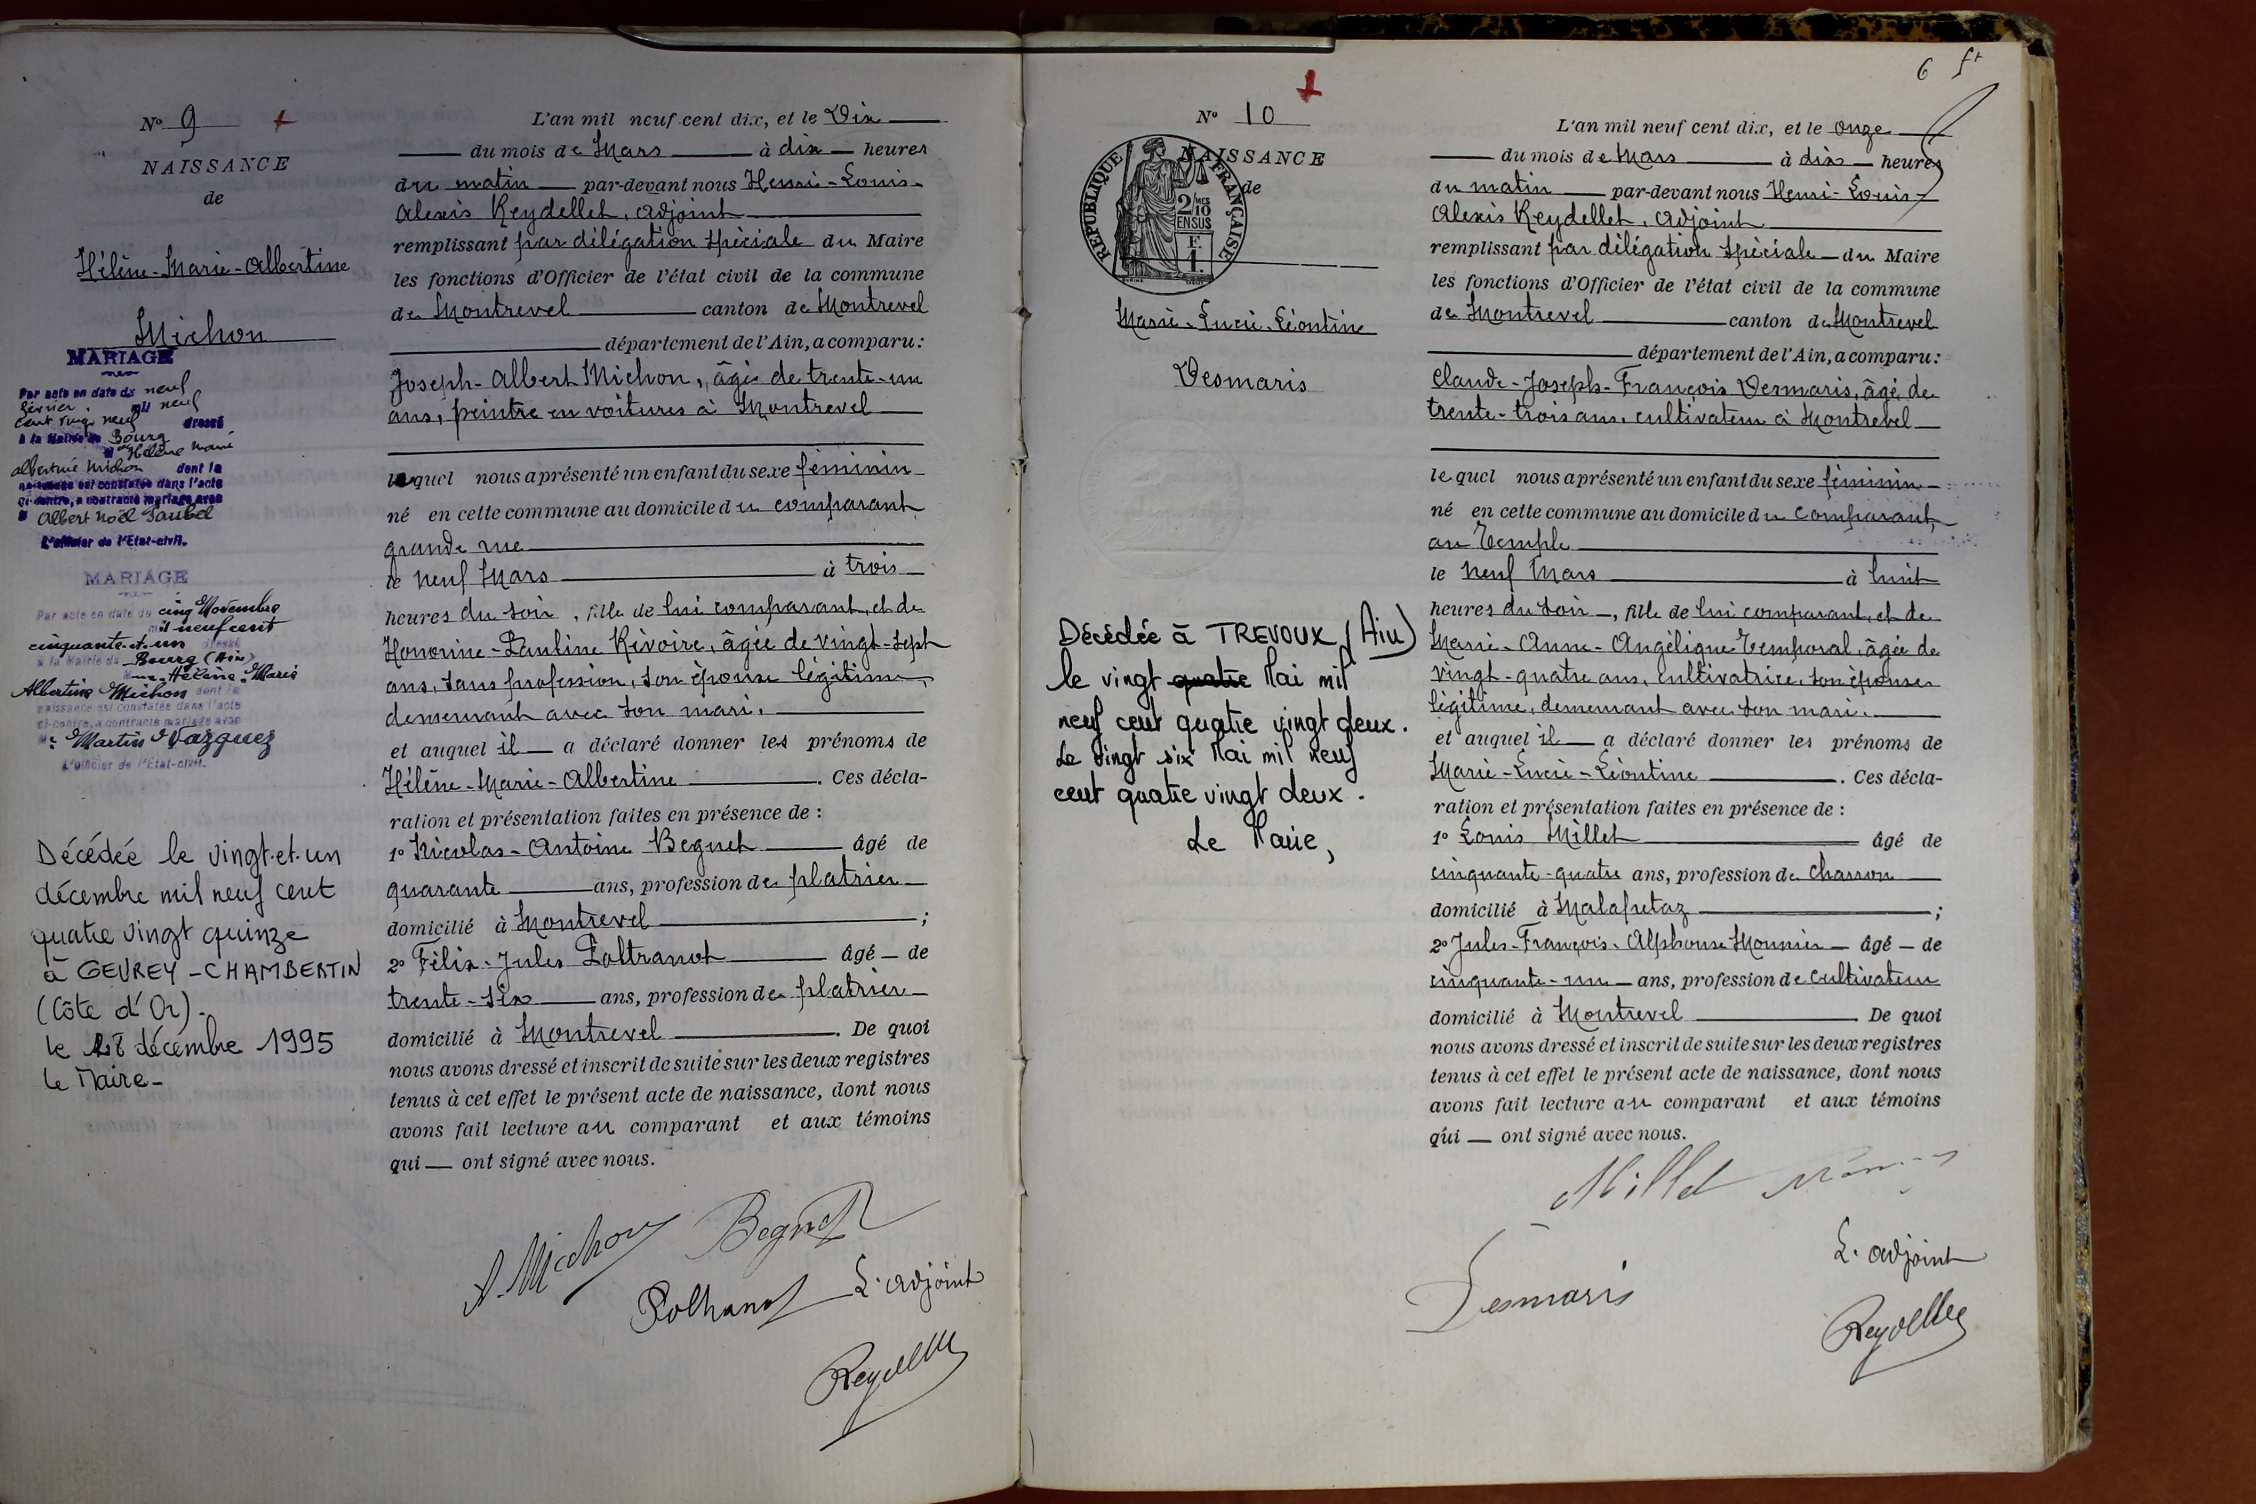 N° 9
NAISSANCE
de
Hélène-Marie-Albertine
Michon
MARIAGE
Par acte en date du neuf
février mil neuf
cent vingt neuf dressé
à la Mairie de Bourg
Hélène Marie
Albertine Michon dont la
naissance est constatée dans l'acte
ci-contre, a contracté mariage avec
Albert Noël Jaubel
L'officier de l'Etat-civil.
MARIAGE
Par acte en date du cinq Novembre
mil neuf cent
cinquante-et-un dressé
à la Mairie de Bourg (Ain)
Hélène-Marie
Albertine Michon dont la
naissance est constatée dans l'acte
ci-contre, a contracté mariage avec
Martin Vazquez
L'officier de l'Etat-civil.
Décédée le vingt-et-un
décembre mil neuf cent
quatre vingt quinze
à GEVREY-CHAMBERTIN
(Côte d'Or).
le 28 décembre 1995
le Maire-
L'an mil neuf cent dix, et le Dix
du mois de Mars à dix heures
du matin par-devant nous Henri-Louis-
Alexis Reydellet, adjoint
remplissant par délégation spéciale du Maire
les fonctions d'Officier de l'état civil de la commune
de Montrevel canton de Montrevel
département de l'Ain, a comparu:
Joseph-Albert Michon, âgé de trente-un
ans, peintre en voitures à Montrevel
lequel nous a présenté un enfant du sexe féminin
né en cette commune au domicile du comparant
grande rue
le neuf Mars à trois
heures du soir, fille de lui comparant, et de
Honorine-Pauline Rivoire, âgée de vingt-sept
ans, sans profession, son épouse légitime,
demeurant avec son mari.
et auquel il a déclaré donner les prénoms de
Hélène-Marie-Albertine. Ces décla-
ration et présentation faites en présence de :
1° Nicolas-Antoine Beguet âgé de
quarante ans, profession de platrier
domicilié à Montrevel ;
2° Félix-Jules Poltranot âgé de
trente-six ans, profession de platrier
domicilié à Montrevel. De quoi
nous avons dressé et inscrit de suite sur les deux registres
tenus à cet effet le présent acte de naissance, dont nous
avons fait lecture au comparant et aux témoins
qui ont signé avec nous.
A. Michon Beguet
Poltranot L'adjoint
Reydellet
6
N° 10
NAISSANCE
de
REPUBLIQUE FRANÇAISE
2/10 EN SUS
Marie-Lucie-Léontine
Desmaris
Décédée à TREVOUX (Ain)
le vingt quatre Mai mil
neuf cent quatre vingt deux.
Le vingt six Mai mil neuf
cent quatre vingt deux.
Le Maire,
L'an mil neuf cent dix, et le onze
du mois de Mars à dix heures
du matin par-devant nous Henri-Louis-
Alexis Reydellet, adjoint
remplissant par délégation spéciale du Maire
les fonctions d'Officier de l'état civil de la commune
de Montrevel canton de Montrevel
département de l'Ain, a comparu:
Claude-Joseph-François Desmaris, âgé de
trente-trois ans, cultivateur à Montrevel
lequel nous a présenté un enfant du sexe féminin
né en cette commune au domicile du comparant
au Temple
le neuf Mars à huit
heures du soir, fille de lui comparant, et de
Marie-Anne-Angélique Temporal, âgée de
vingt-quatre ans, cultivatrice, son épouse
légitime, demeurant avec son mari.
et auquel il a déclaré donner les prénoms de
Marie-Lucie-Léontine. Ces décla-
ration et présentation faites en présence de :
1° Louis Millet âgé de
cinquante-quatre ans, profession de charron
domicilié à Malafretaz ;
2° Jules-François-Alphonse Mounier âgé de
cinquante-un ans, profession de cultivateur
domicilié à Montrevel. De quoi
nous avons dressé et inscrit de suite sur les deux registres
tenus à cet effet le présent acte de naissance, dont nous
avons fait lecture au comparant et aux témoins
qui ont signé avec nous.
Millet
L'adjoint
Desmaris
Reydellet